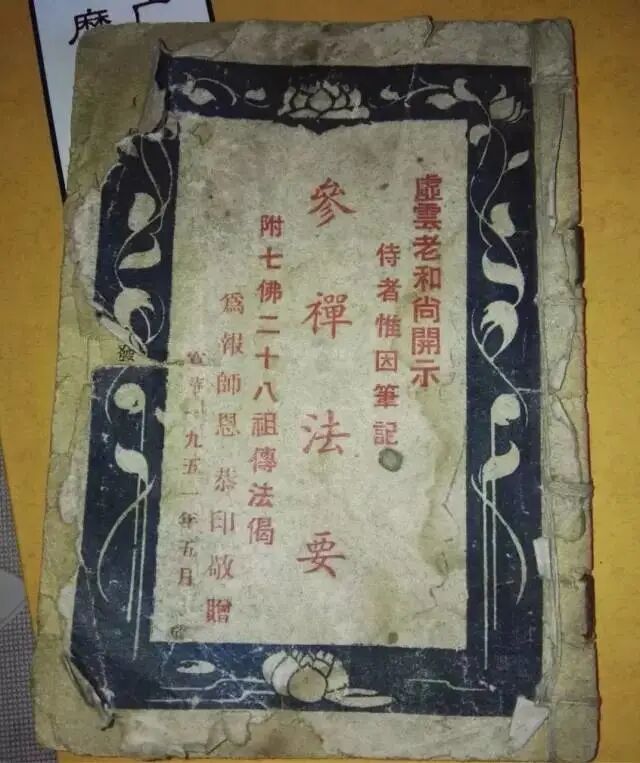 虛雲老和尚開示
侍者惟因筆記
參禪法要
附七佛二十八祖傳法偈
爲報師恩恭印敬贈
一九五一年五月